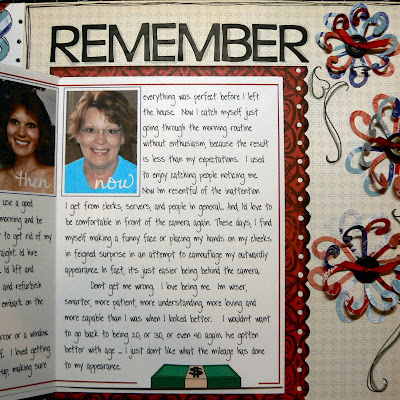 REMEMBER
then
use a good
morning and be
to get rid of my
I'd hire
I'd left and
and refurbish
embark on the
error or a window
I loved getting
-up, making sure
now
everything was perfect before I left
the house. Now I catch myself just
going through the morning routine
without enthusiasm, because the result
is less than my expectations. I used
to enjoy catching people noticing me.
Now I'm resentful of the inattention
I get from clerks, servers, and people in general. And, I'd love to
be comfortable in front of the camera again. These days, I find
myself making a funny face or placing my hands on my cheeks
in feigned surprise in an attempt to camouflage my outwardly
appearance. In fact, it's just easier being behind the camera.
Don't get me wrong. I love being me. I'm wiser,
smarter, more patient, more understanding, more loving and
more capable than I was when I looked better. I wouldn't want
to go back to being 20, or 30, or even 40 again. I've gotten
better with age ... I just don't like what the mileage has done
to my appearance.
$